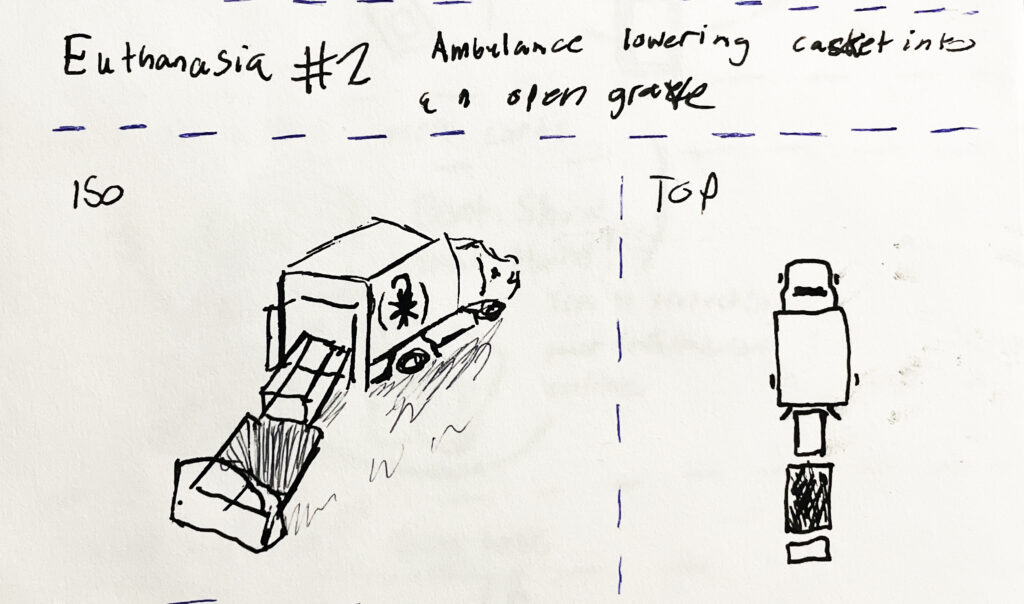 Euthanasia #2 Ambulance lowering casket into
an open grave
ISO
TOP